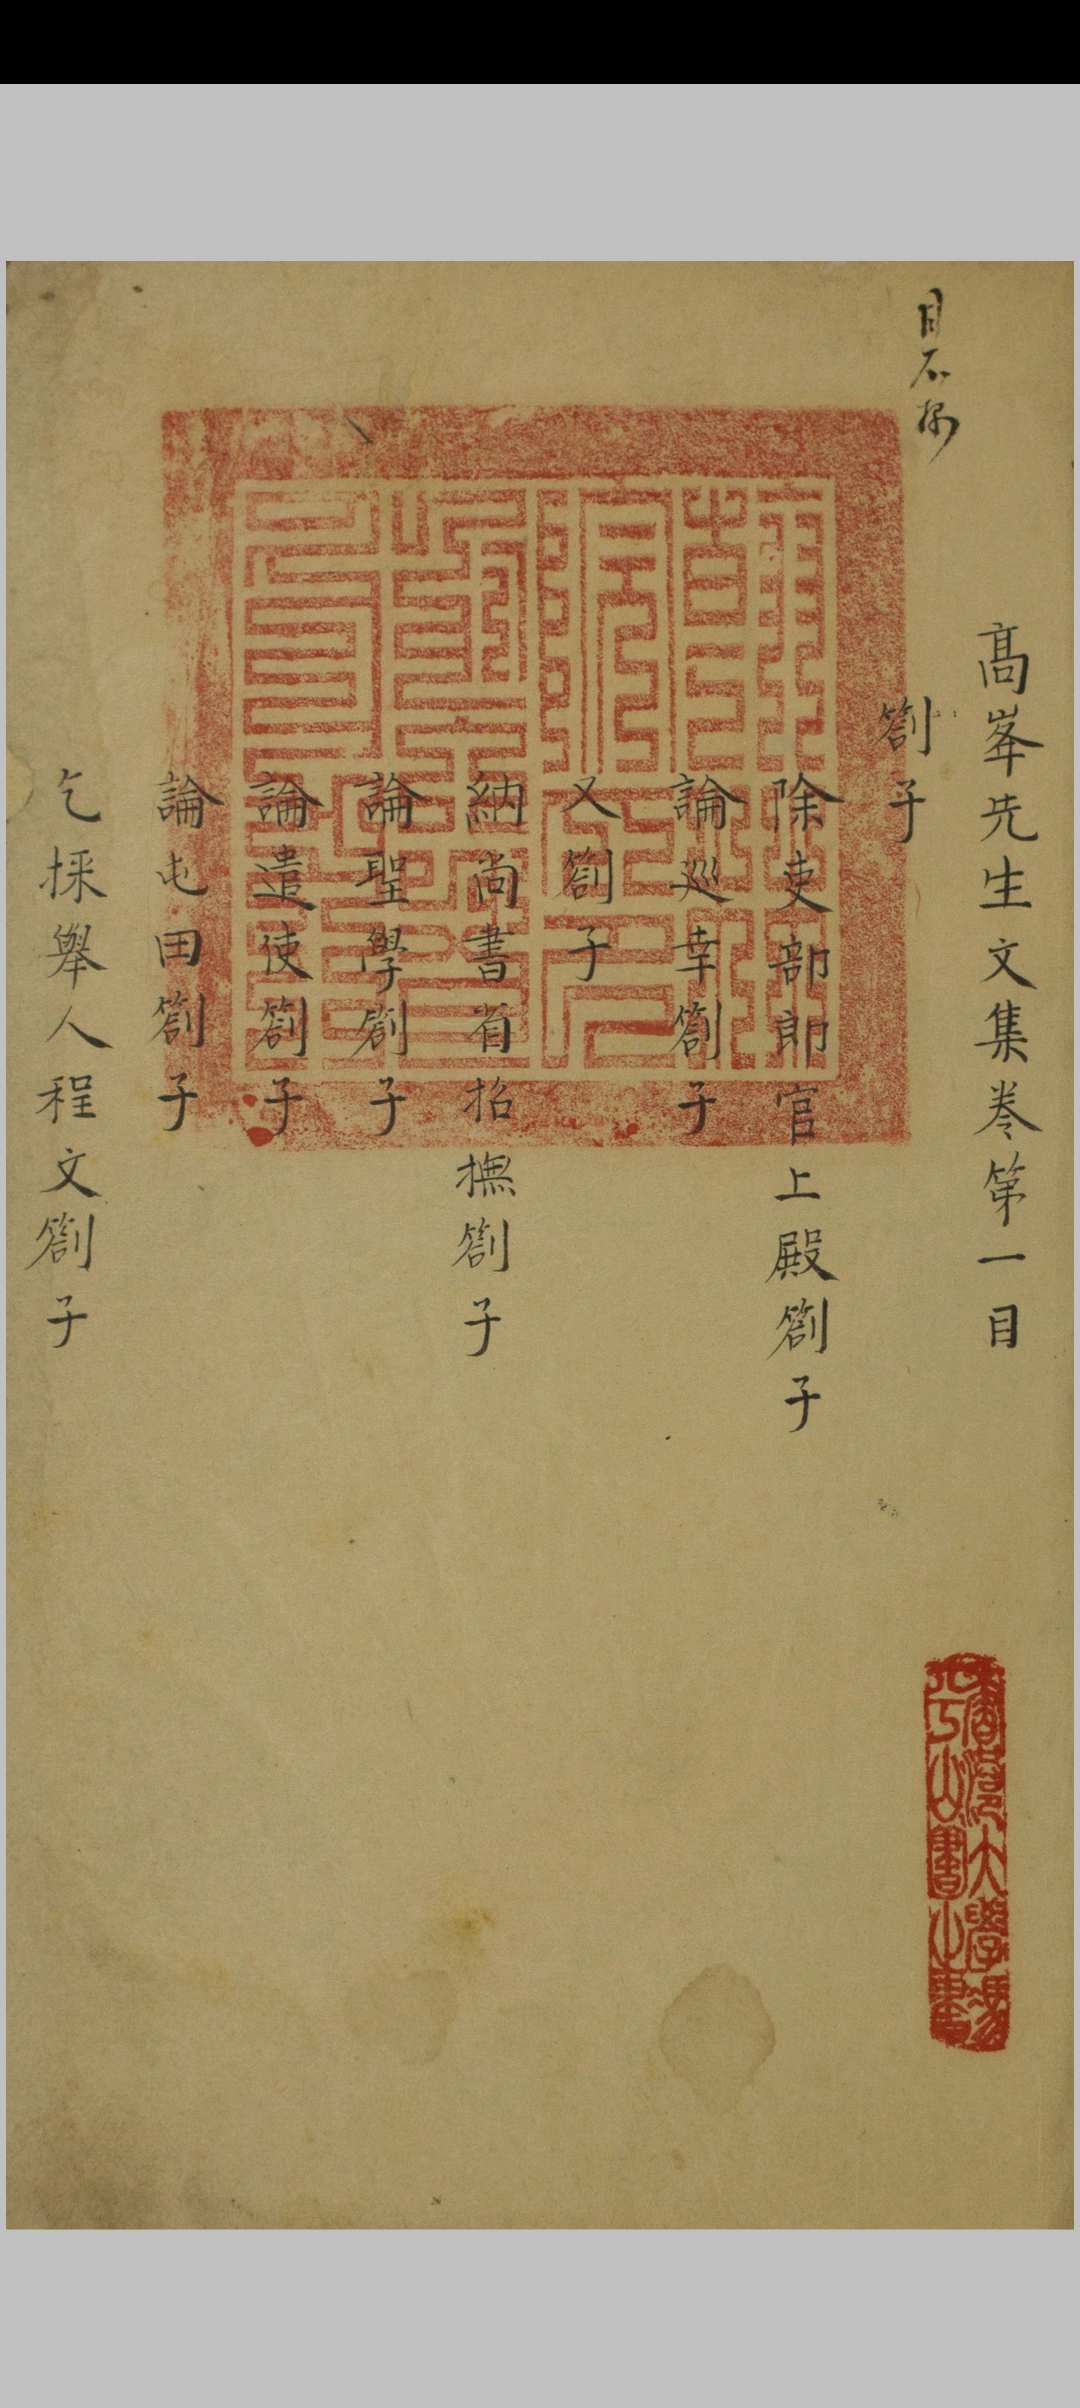 髙峯先生文集卷第一目
目不抄
劄子
除吏部郎官上殿劄子
論巡幸劄子
又劄子
納尚書省招撫劄子
論聖學劄子
論遣使劄子
論屯田劄子
乞採舉人程文劄子
翰林院印